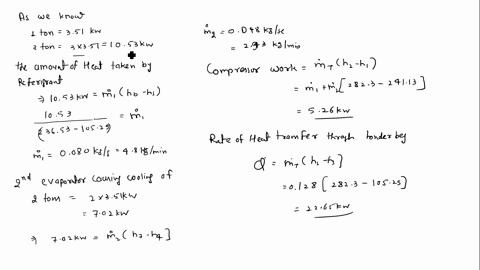 As we know
1 ton = 3.51 kw
3 ton = 3×3.51 = 10.53 kw
the amount of Heat taken by
Refrigrant
⇒ 10.53 kw = ṁ₁ (h₀-h₁)
10.53
(236.53-105.29) = ṁ₁
ṁ₁ = 0.080 kg/s = 4.8 kg/min
2nd evaporator causing cooling of
2 tons = 2×3.51 kw
= 7.02 kw
⇒ 7.02 kw = ṁ₂ (h₇-h₄]
ṁ₂ = 0.048 kg/se
= 2.93 kg/min
Compressor work = ṁT (h₂-h₁)
= ṁ₁+ṁ₂ [282.3-241.13)
= 5.26 kw
Rate of Heat transfer through
Q̇ = ṁT (h₁-h]
= 0.128 [282.3-105.25)
= 22.65 kw